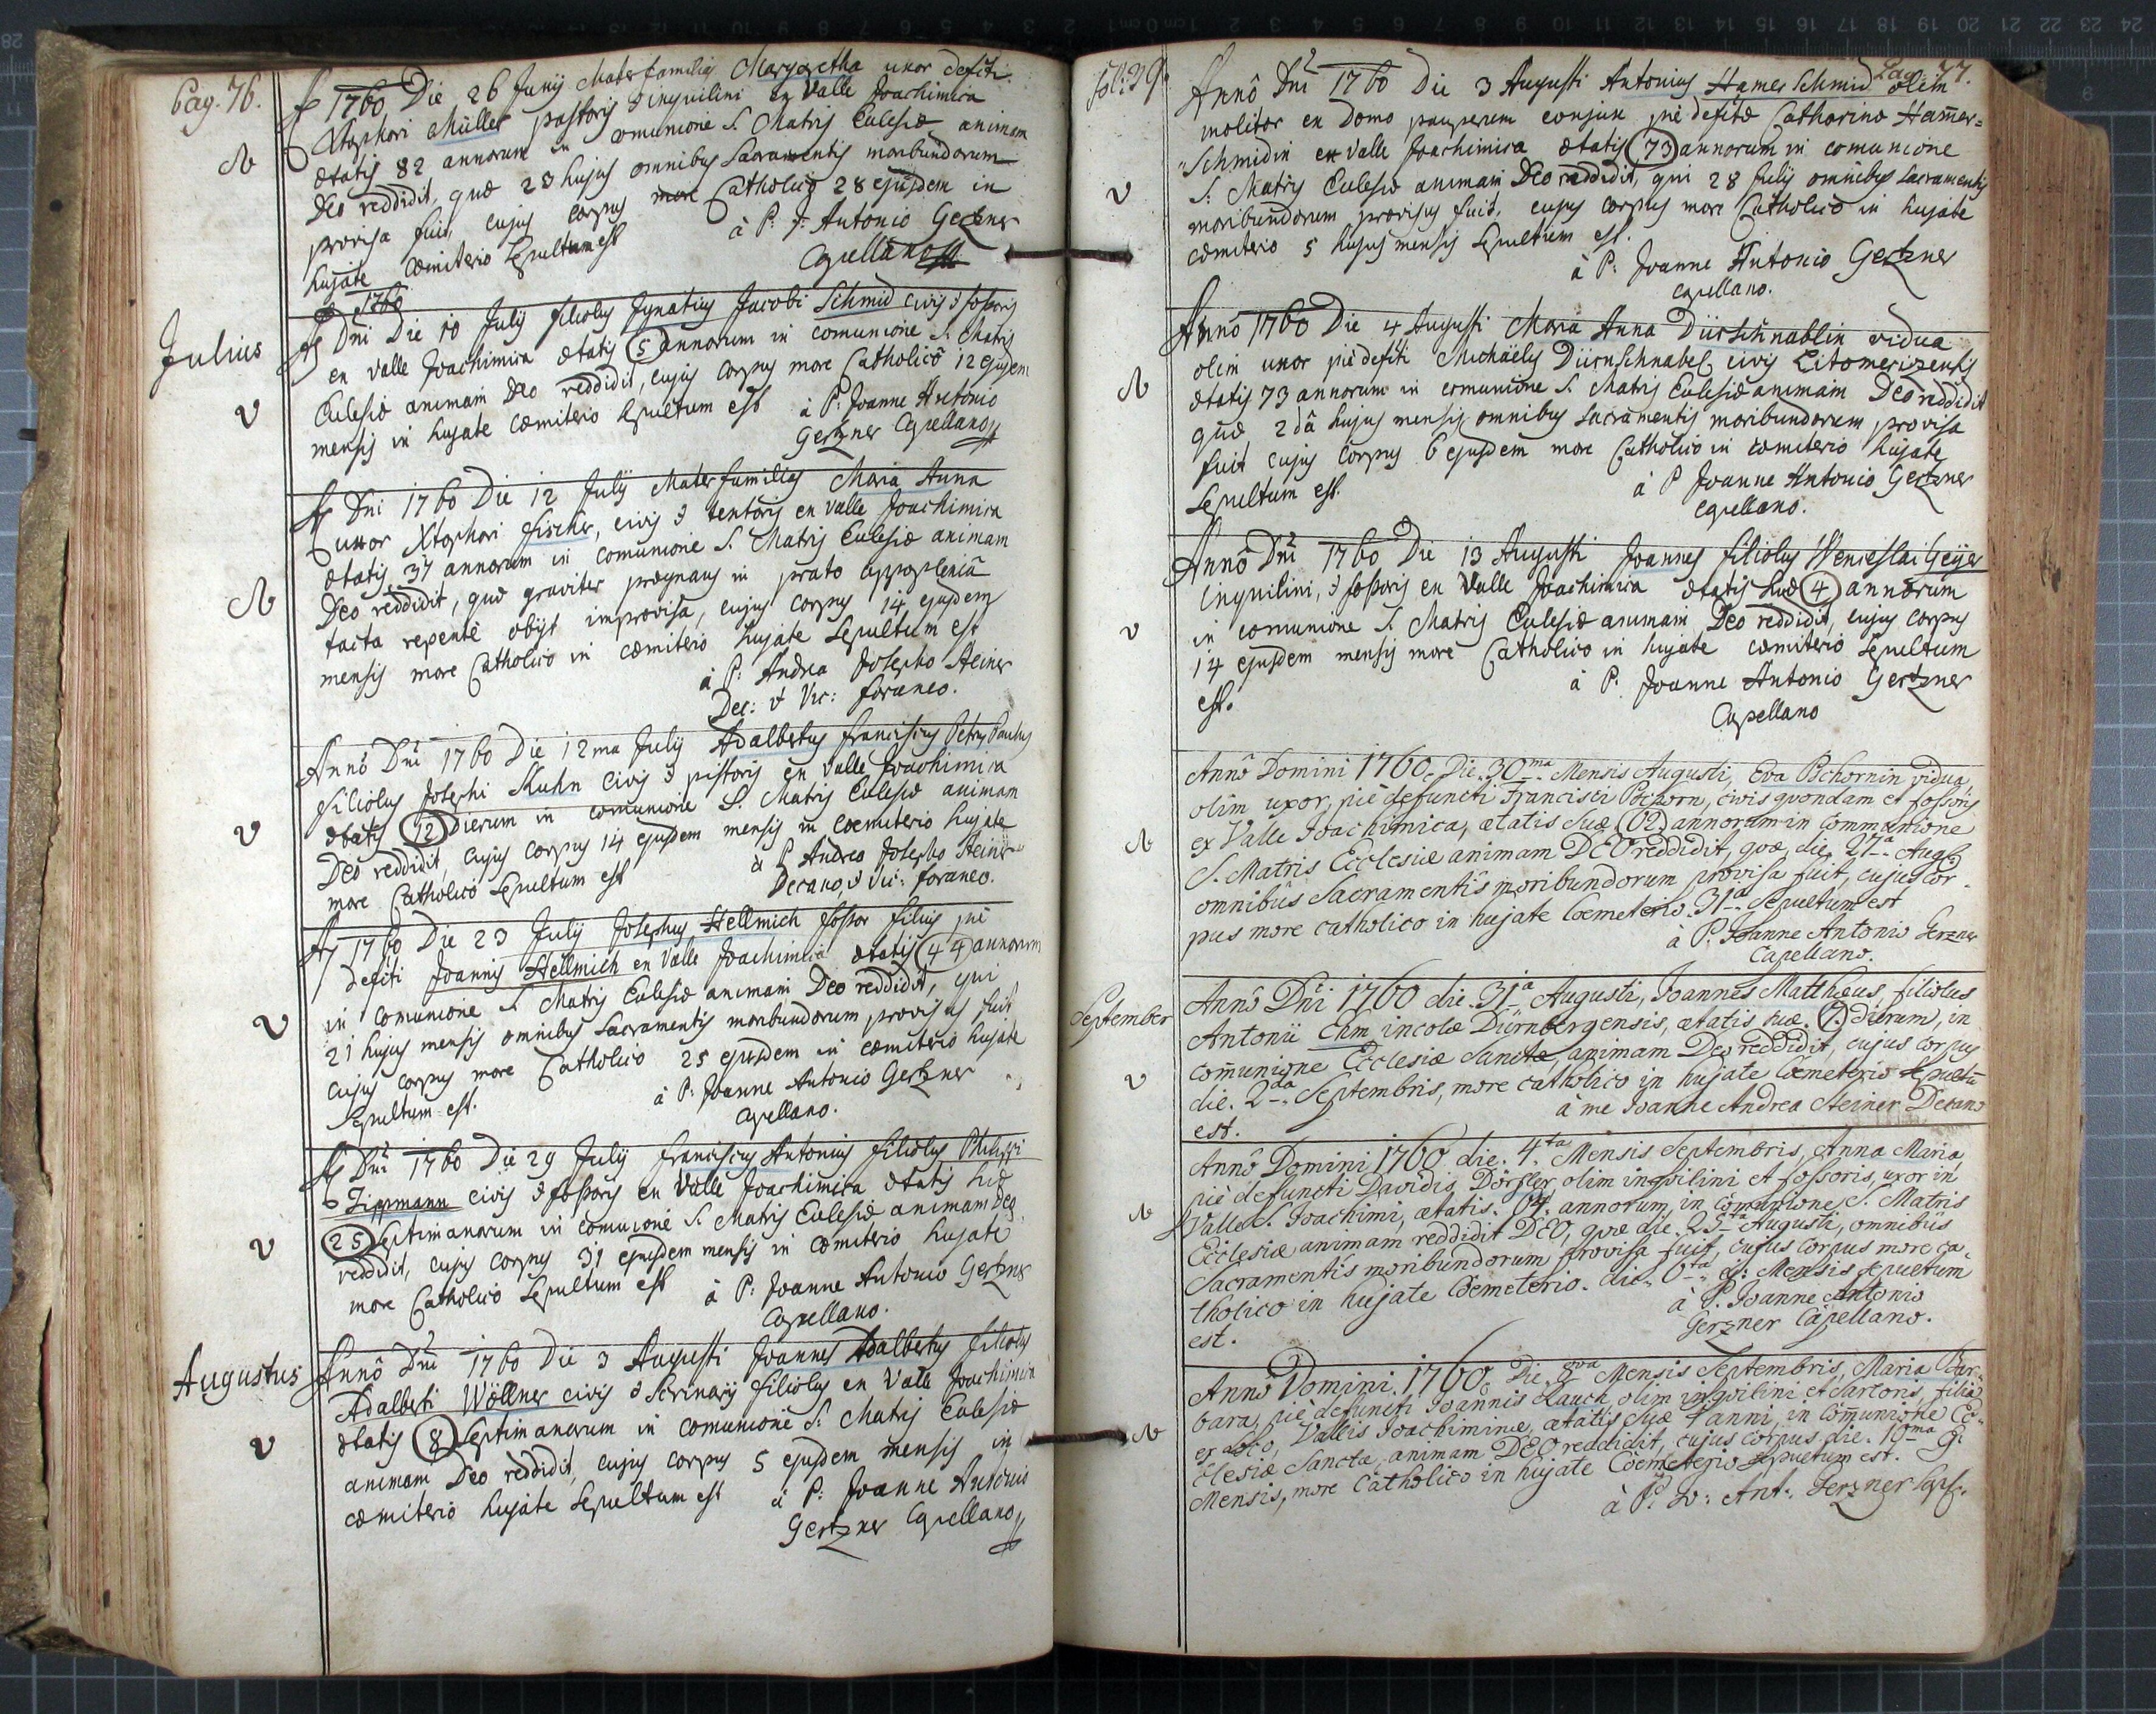 Pag. 76.
1760 Die 26 Junÿ Mater familias Margaretha uxor defũti
Xtophori Müller pastoris & inquilini ex Valle Joachimica
ætatis 82 annorum in comunione S. Matris Eclesiæ animam
Deo reddidit, quæ 23 hujus omnibus Sacramentis moribundorum
provisa fuit, cujus corpus more Catholico 28 ejusdem in
hujate cœmiterio sepultum est à P: J: Antonio Gertzner
Capellano
1760
Julius
Dni Die 10 Julÿ filiolus Ignatius Jacobi Schmid civis & fossoris
ex Valle Joachimica ætatis 5 annorum in comunione S. Matris
Eclesiæ animam Deo reddidit, cujus corpus more Catholico 12 ejusdem
mensis in hujate cœmiterio sepultum est à P: Joanne Antonio
Gertzner Capellano
Dni 1760 Die 12 Julÿ Mater familias Maria Anna
uxor Xtophori Fischer, civis & tentoris ex Valle Joachimica
ætatis 37 annorum in comunione S. Matris Eclesiæ animam
Deo reddidit, quæ graviter prægnans in prato appoplexiâ
tacta repentè obÿt improvisa, cujus corpus 14 ejusdem
mensis more Catholico in cœmiterio hujate sepultum est
à P: Andrea Josepho Steiner
Dec: & Vic: foraneo.
Annô Dni 1760 Die 12ma Julÿ Adalbertus Franciscus Petrus Paulus
filiolus Josephi Kuhn civis & pistoris ex Valle Joachimica
ætatis 12 Dierum in comunione S. Matris Eclesiæ animam
Deo reddidit, cujus corpus 14 ejusdem mensis in cœmiterio hujate
more Catholico sepultum est à P Andrea Josepho Steiner
Decano, & Vic: foraneo.
1760 Die 23 Julÿ Josephus Hellmich fossor filius piè
defũti Joannis Hellmich ex Valle Joachimica ætatis 44 annorum
in comunione S. Matris Eclesiæ animam Deo reddidit, qui
21 hujus mensis omnibus sacramentis moribundorum provisus fuit
cujus corpus more Catholico 25 ejusdem in cœmiterio hujate
sepultum est. à P: Joanne Antonio Gertzner
Capellano.
Dni 1760 Die 29 Julÿ Franciscus Antonius filiolus Philippi
Zippmann civis & fossoris ex Valle Joachimica ætatis suæ
25 septimanarum in comunione S. Matris Eclesiæ animam Deo
reddidit, cujus corpus 31 ejusdem mensis in cœmiterio hujate
more Catholico sepultum est à P: Joanne Antonio Gertzner
Capellano.
Augustus
Annô Dni 1760 Die 3 Augusti Joannes Adalbertus filiolus
Adalberti Wöllner civis & scrinarÿ filiolus ex Valle Joachimica
ætatis 8 septimanarum in comunione S: Matris Eclesiæ
animam Deo reddidit, cujus corpus 5 ejusdem mensis in
cœmiterio hujate sepultum est à P: Joanne Antonio
Gertzner Capellano
fol: 39. Pag. 77.
Annô Dni 1760 Die 3 Augusti Antonius Hamerschmid olim
molitor ex Domo pauperum conjux piè defũtæ Catharinæ Ham̃er=
schmidin ex Valle Joachimica ætatis 73 annorum in comunione
S. Matris Eclesiæ animam Deo reddidit, qui 28 Julÿ omnibus sacramentis
moribundorum provisus fuit, cujus corpus more Catholico in hujate
cœmiterio 5 hujus mensis sepultum est.
à P: Joanne Antonio Gertzner
Capellano.
Annô 1760 Die 4 Augusti Maria Anna Dürschnablin vidua
olim uxor piè defũti Michaëlis Dürnschnabel civis Litomerizensis
ætatis 73 annorum in comunione S. Matris Eclesiæ animam Deo reddidit
quæ 2dâ hujus mensis omnibus sacramentis moribundorum provisa
fuit cujus corpus 6 ejusdem more Catholico in cœmiterio hujate
sepultum est. à P Joanne Antonio Gertzner
Capellano.
Annô Dni 1760 Die 13 Augusti Joannes filiolus Wenceslai Geÿer
inquilini, & fossoris ex Valle Joachimica ætatis suæ 4 annorum
in comunione S. Matris Eclesiæ animam Deo reddidit, cujus corpus
14 ejusdem mensis more Catholico in hujate cœmiterio sepultum
est. à P. Joanne Antonio Gertzner
Capellano
Annô Domini 1760. Die. 30ma. Mensis Augusti, Eva Pochornin vidua
olim uxor, piè defuncti Francisci Pochorn, civis quondam et fossoris
ex Valle Joachimica, ætatis suæ 62 annorum in communione
S. Matris Ecclesiæ animam DEO reddidit, quæ, die, 27a Augs
omnibus Sacramentis moribundorum provisa fuit, cujus cor-
pus more catholico in hujate Cœmeterio. 31a sepultum est
à P. Joanne Antonio Gerzner
Capellano.
September
Annô Dni 1760 die. 31a Augusti, Joannes Matthæus, filiolus
Antonii Ehm incolæ Dürnbergensis, ætatis suæ. 7. dierum, in
comunione Ecclesiæ Sanctæ, animam Deo reddidit, cujus corpus
die. 2da Septembris, more catholico in hujate Cœmeterio sepultũ
est. à me Joanne Andrea Steiner Decano
Annô Domini 1760 die. 4ta Mensis Septembris, Anna Maria
piè defuncti Davidis Dörfler olim inquilini et fossoris, uxor in
Valle S. Joachimi, ætatis. 64. annorum, in comunione S. Matris
Ecclesiæ animam reddidit DEO, quæ die. 25ta Augusti, omnibus
Sacramentis moribundorum provisa fuit, cujus corpus more ca-
tholico in hujate Cœmeterio. die. 6ta ej: Mensis sepultum
est. à P. Joanne Antonio
Gerzner Capellano.
Annô Domini. 1760. Die. 8va Mensis Septembris, Maria Bar-
bara, piè defuncti Joannis Rauch olim inquilini et Sartoris, filia
ex Loco, Vallis Joachimicæ, ætatis suæ 4 anni, in com̃unione Ec-
clesiæ Sanctæ, animam DEO reddidit, cujus corpus die. 10ma ej:
Mensis, more Catholico in hujate Cœmeterio sepultum est.
à P. Jo: Ant: Gerzner